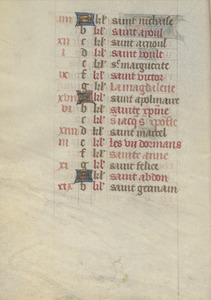 IIII A kl' saint nichaise
b kl' saint aioul
XII c kl' saint arnoul
I d kl' saint loult
e kl' sᵉ marguerite
IX f kl' saint victor
g kl' la magdelene
XVII A kl' saint apolinaire
VI b kl' sainte xpine
c kl' s iaqs xpofle
XIIII d kl' saint marcel
III e kl' les vii dormans
f kl' sainte anne
XI g kl' saint felice
A kl' saint abdon
XIX b kl' saint germain